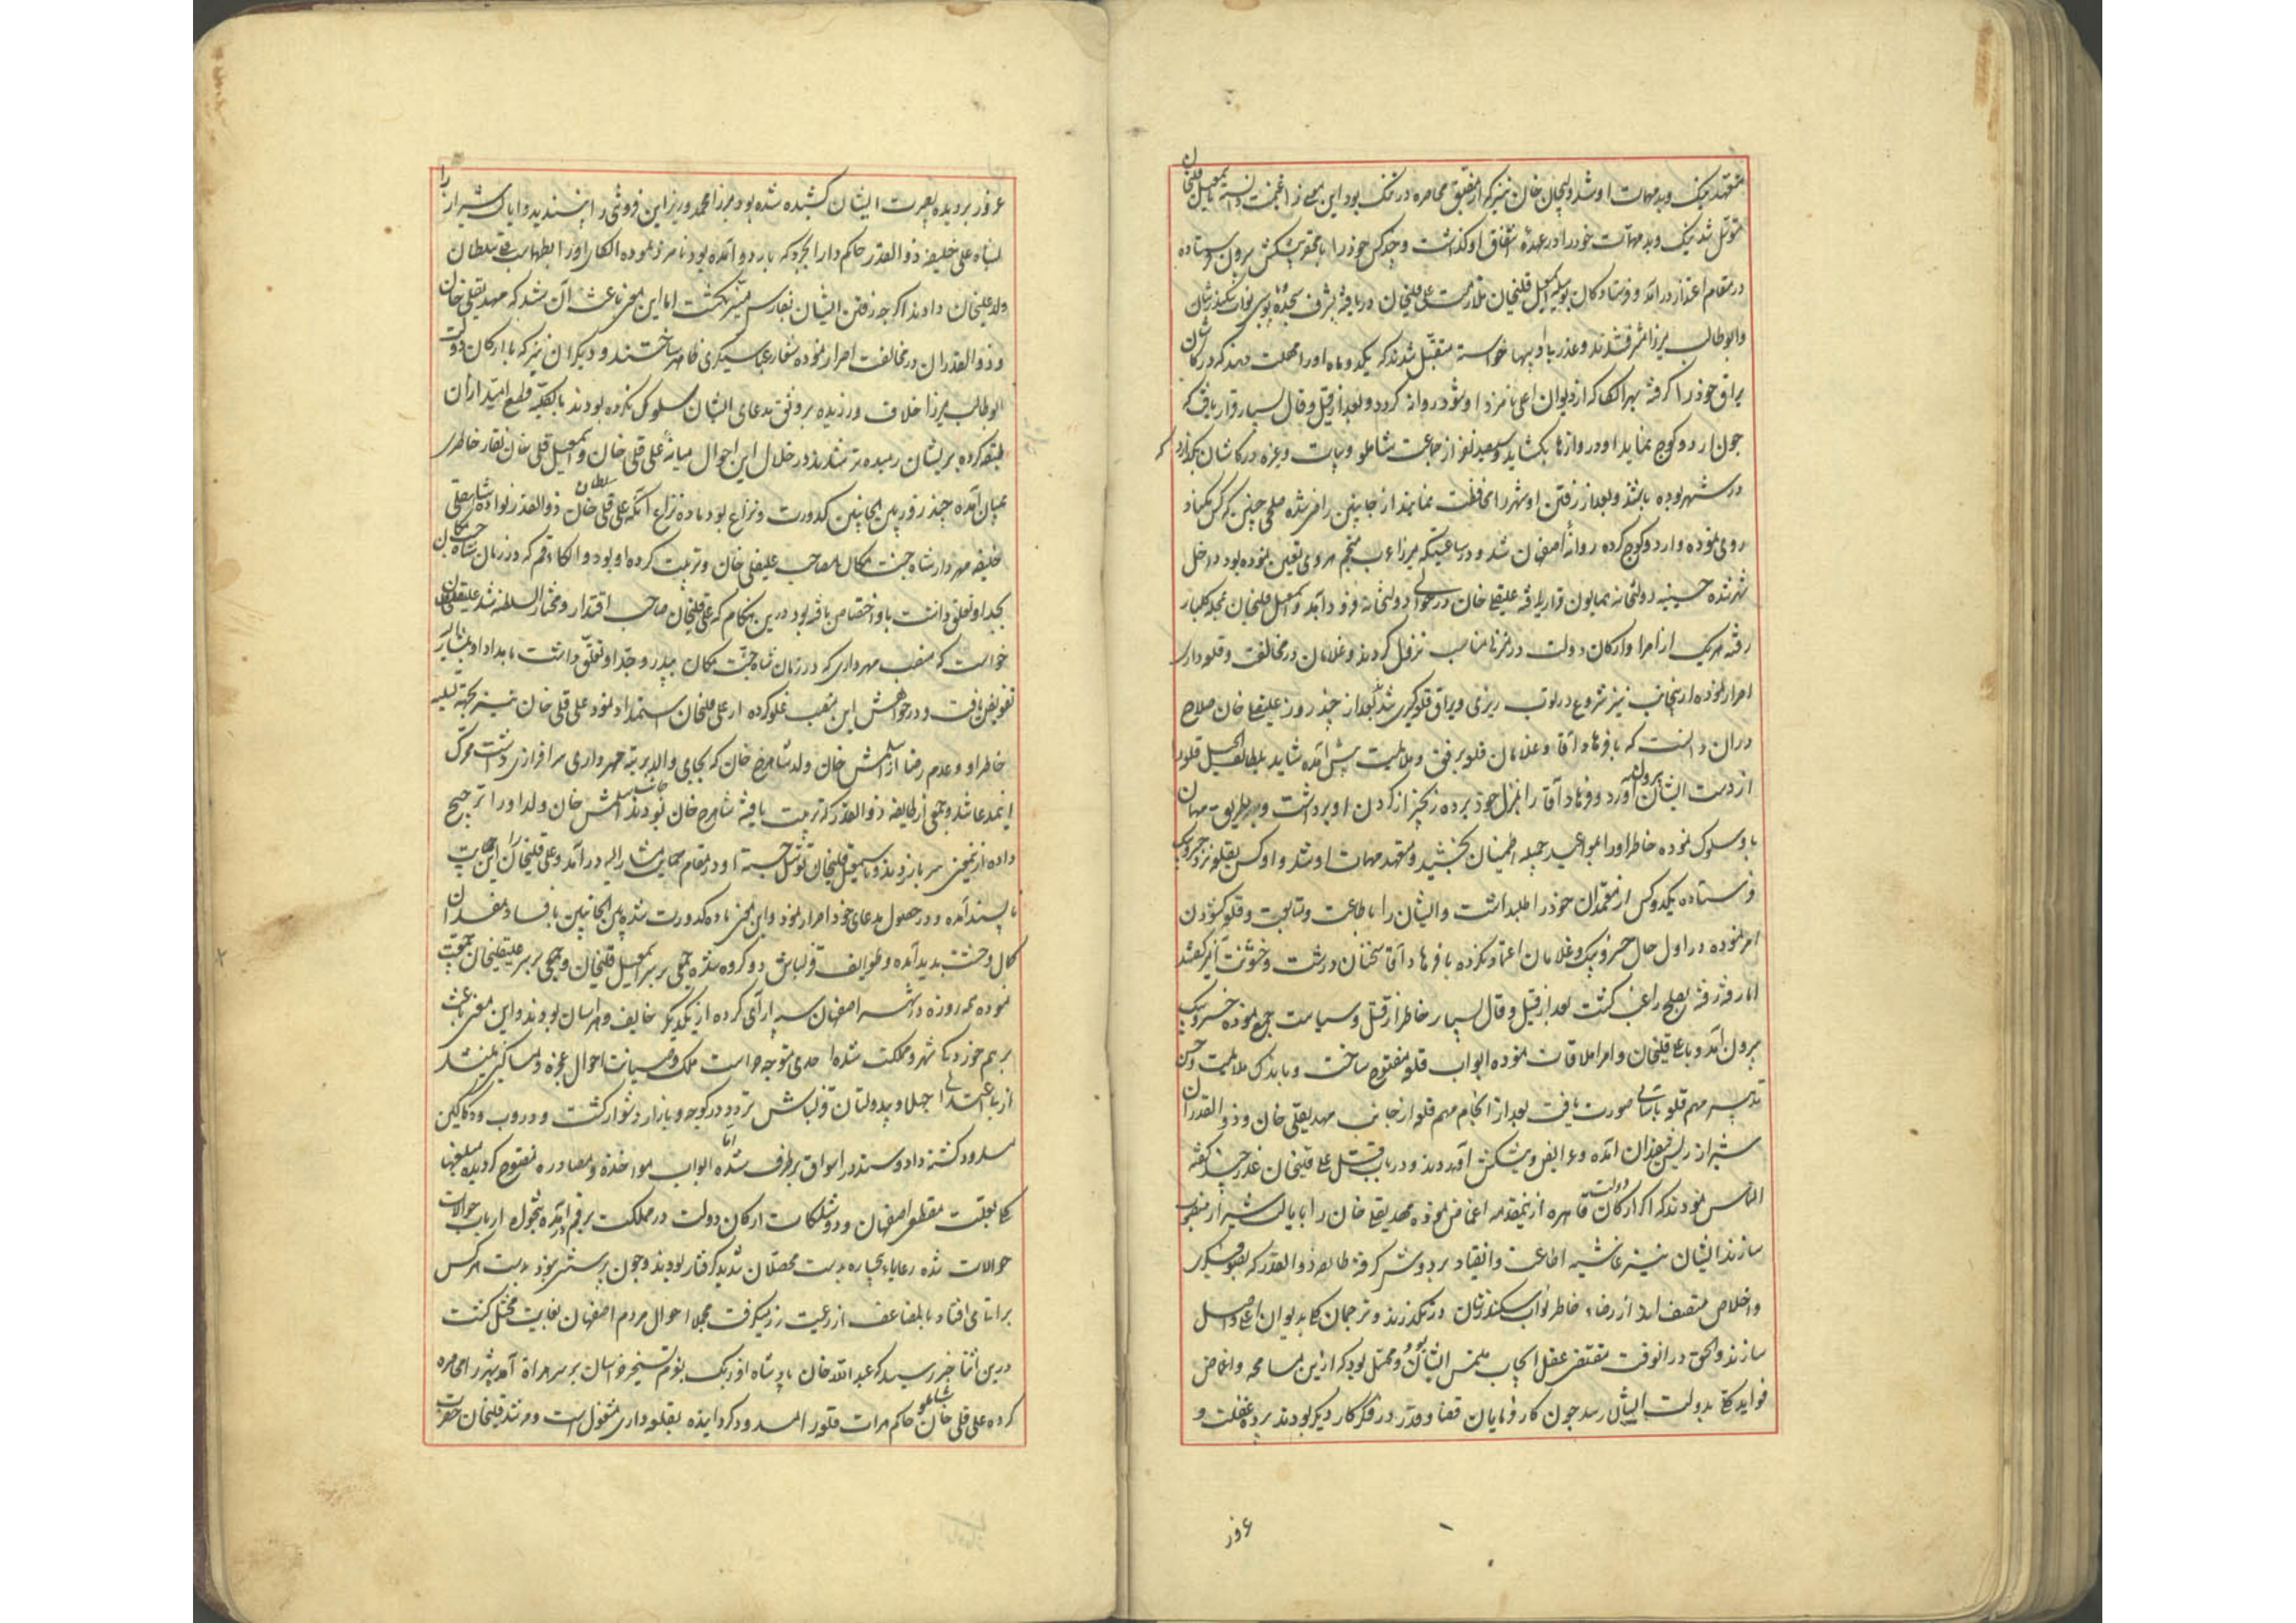 متعهد نیک و بد مهمات او شد ولیجان خان نیز که از مضیق محاصره در تنک بود این معنی را غنیمت دانسته باسمعیل قلیخان
متوسل شد نیک و بد مهمات خود را در عهدهٔ اشفاق او کذاشت و چند کس خود را با تحف و پیشکش بیرون فرستاده
در مقام اعتذار درآمد و فرستادکان بوسیله اسمعیل قلیخان بملازمت علی قلیخان دریافته بشرف سجده و پای بوس نواب سکندرشان
و ابوطالب میرزا مشرف شدند و عذر بی ادبیها خواسته متقبل شدند که یکدو ماه او را مهلت دهند که در کاشان
یراق خود را کرفته بهر الکا که از دیوان اعلی نامزد او شود روانه کردد و بعد از قیل و قال بسیار قرار یافت که
چون اردو کوچ نماید او دروازها بکشاید و سیصد نفر از جماعت شاملو و بیات و غیره در کاشان بکذارد که
در شهر بوده باشند و بعد از رفتن او شهر را محافظت نمایند از جانبین راضی شده صلحی چنین که کس نکند
روی نموده و اردو کوچ کرده روانهٔ اصفهان شد و در ساعتیکه میرزا عرب منجم هروی تعیین نموده بود داخل
شهر شده حسینیه دولتخانه همایون قرار یافته علیقلی خان در حوالی دولتخانه فرود آمد و اسمعیل قلیخان بمحله کلبار
رفته هر یک از امرا و ارکان دولت در منزلها مناسب نزول کردند و غلامان در مخالفت و قلعه داری
اصرار نموده از اینجانب نیز شروع در توپ ریزی و یراق قلعه کیری شد بعد از چند روز علیقلی خان صلاح
در آن دانست که با فرهاد آقا و غلامان قلعه برفق و ملایمت پیش آمده شاید بلطایف الحیل قلعه را
از دست ایشان بیرون آورد و فرهاد آقا را بمنزل خود برده زنجیر از کردن او برداشت و بطریق مهمان
با او سلوک نموده خاطر او را بمواعید جمیله اطمینان بخشید و متعهد مهمات او شد و او کس بقلعه نزد خسرو بیک
فرستاده یکدو کس از معتمدان خود را طلب داشت و ایشان را باطاعت و متابعت و قلعه کشودن
امر نموده در اول حال خسرو بیک و غلامان اعتماد نکرده با فرهاد آقا سخنان درشت و خشونت آمیز کفتند
اما رفته رفته بصلح راغب کشت بعد از قیل و قال بسیار خاطر از قتل و سیاست جمع نموده خسرو بیک
بیرون آمد و با علی قلیخان و امرا ملاقات نموده ابواب قلعه مفتوح ساخت و باندک ملایمت و حسن
تدبیر مهم قلعه باسانی صورت یافت بعد از انجام مهم قلعه از جانب مهدیقلی خان و ذوالقدران
شیراز ریش سفیدان آمده و عرایض و پیشکش آوردند و در باب قتل علی قلیخان عذر چند کفته
التماس نمودند که اکر ارکان دولت قاهره از نیمقدمه اغماض نموده مهدیقلی خان را بایالت شیراز منصوب
سازند ایشان نیز غاشیه اطاعت و انقیاد بر دوش کرفته طایفه ذوالقدر که بصوفیکری
و اخلاص متصف اند از رضاء خاطر نواب سکندرشان در نکذرند و ترجمان کلی بدیوان اعلی واصل
سازند و الحق در آنوقت مقتضی عقل ایجاب ملتمس ایشان بود و محتمل بود که از این مسامحه و اغماض
فواید کلی بدولت ایشان رسد چون کار فرمایان قضا و قدر در فکر کار دیکر بودند پردهٔ غفلت و
غرور
غرور بر دیدهٔ بصیرت ایشان کشیده شده بود میرزا محمد وزیر این فروشی را نپسندیده و ایالت شیراز را
بشاه علی خلیفه ذوالقدر حاکم دارابجرد که باردو آمده بود نامزد نموده الکای او را بطهماسب قلی سلطان
ولد علیخان دادند اکرچه رفتن ایشان بفارس میسر نکشت اما این معنی باعث آن شد که مهدیقلی خان
و ذوالقدران در مخالفت اصرار نموده شعار عباسیکری ظاهر ساختند و دیکران نیز که با ارکان دولت
ابوطالب میرزا خلاف ورزیده بر وفق مدعای ایشان سلوک نکرده بودند بالکلیه قطع امید از آن
طبقه کرده پریشان رمیده تر شدند در خلال این احوال میانه علی قلی خان و اسمعیل قلی خان نقار خاطری
بمیان آمده چند روز بین الجانبین کدورت و نزاع بود ماده نزاع آنکه علی قلی سلطان ذوالقدر نوادهٔ شاهقلی
خلیفه مهردار شاه جنت مکان مصاحب علیقلی خان و تربیت کرده او بود و الکاء قم که در زمان شاه جنت مکان
بجد او تعلق داشت باو اختصاص یافته بود درین هنکام که علی قلیخان صاحب اقتدار و مختار السلطنه شد علیقلی سلطان
خواست که منصب مهرداری که در زمان شاه جنت مکان بپدر و جد او تعلق داشت بامداد او بمشارالیه
تفویض یافت و در خواهش این منصب غلو کرده از علی قلیخان استمداد نمود علی قلی خان نیز بجهة تسلیه
خاطر او و عدم رضا از المش خان ولد شاهرخ خان که بجای والد برتبه مهرداری سرافرازی داشت محرک
اینمدعا شد و جمعی از طایفه ذوالقدر که تربیت یافته شاهرخ خان بودند جانب المش خان ولد او را ترجیح
داده از نیمعنی سر باز زدند و باسمعیل قلیخان توسل جسته او در مقام حمایت مشارالیه درآمد و علی قلیخان را این حمایت
ناپسند آمده و در حصول مدعای خود اصرار نمود و این معنی ماده کدورت شده بین الجانبین بافساد مفسدان
کمال وحشت پدید آمده و طوایف قزلباش دو کروه شده جمعی بر سر اسمعیل قلیخان و جمعی بر سر علیقلیخان جمعیت
نموده همه روزه در شهر اصفهان سپه آرائی کرده از یکدیکر خایف و هراسان بودند و این معنی باعث
برهم خوردکی شهر و مملکت شده احدی متوجه حراست ملک و صیانت احوال عجزه و مساکین نمیشد
از بی اعتدالی اجلاف و بیدولتان قزلباش تردد در کوچه و بازار دشوار کشت و دروب و دکاکین
مسدود کشته داد و ستد در اسواق برطرف شد اما ابواب مواخذه و مصادره مفتوح کردیده مبلغهای
کلی بعلت مقطع اصفهان و پیشکشات ارکان دولت در مملکت برقم درآمده بتحویل ارباب حوالات
حوالات شده رعایاء بیچاره بدست محصلان شدید کرفتار بودند و چون پرسشی نبود بدست هر کس
براتی می افتاد باضعاف مضاعف از رعیت زر میکرفت مجملا احوال مردم اصفهان بغایت مختل کشت
درین اثنا خبر رسید که عبدالله خان پادشاه اوزبک بعزم تسخیر خراسان بر سر هراة آمده شهر را محاصره
کرده علی قلی خان شاملو حاکم هرات قلعه را مسدود کردانیده بقلعه داری مشغول است و مرشد قلیخان حضرت